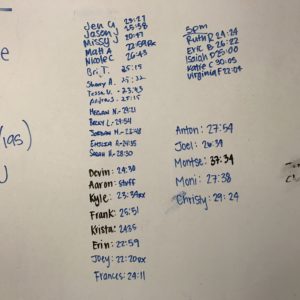 Jen G 23:27
Missy
Matt A
Nicole C 26:43
Bri T. 25:15
Tessa V. 23:43
Andrew 25:15
Megan N. 29:21
Becky L. 27:54
Jordan M. 22:48
Emilea A. 24:35
Sarah N. 28:30
Devin: 24:30
Aaron: stuff
Kyle: 23:39RX
Frank: 25:51
Krista: 24:35
Erin: 22:59
Joey: 22:20RX
Frances: 24:11
5pm
Ruth R 24:24
Eric B 26:22
Isaiah D 25:00
Katie C 30:05
Virginia F 22:04
Anton: 27:54
Joel: 26:39
Montse: 37:34
Moni: 27:38
Christy: 29:24